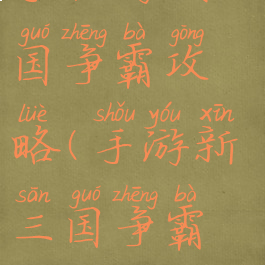 guó zhēng bà gōng
国争霸攻
lüè shǒu yóu xīn
略(手游新
sān guó zhēng bà
三国争霸